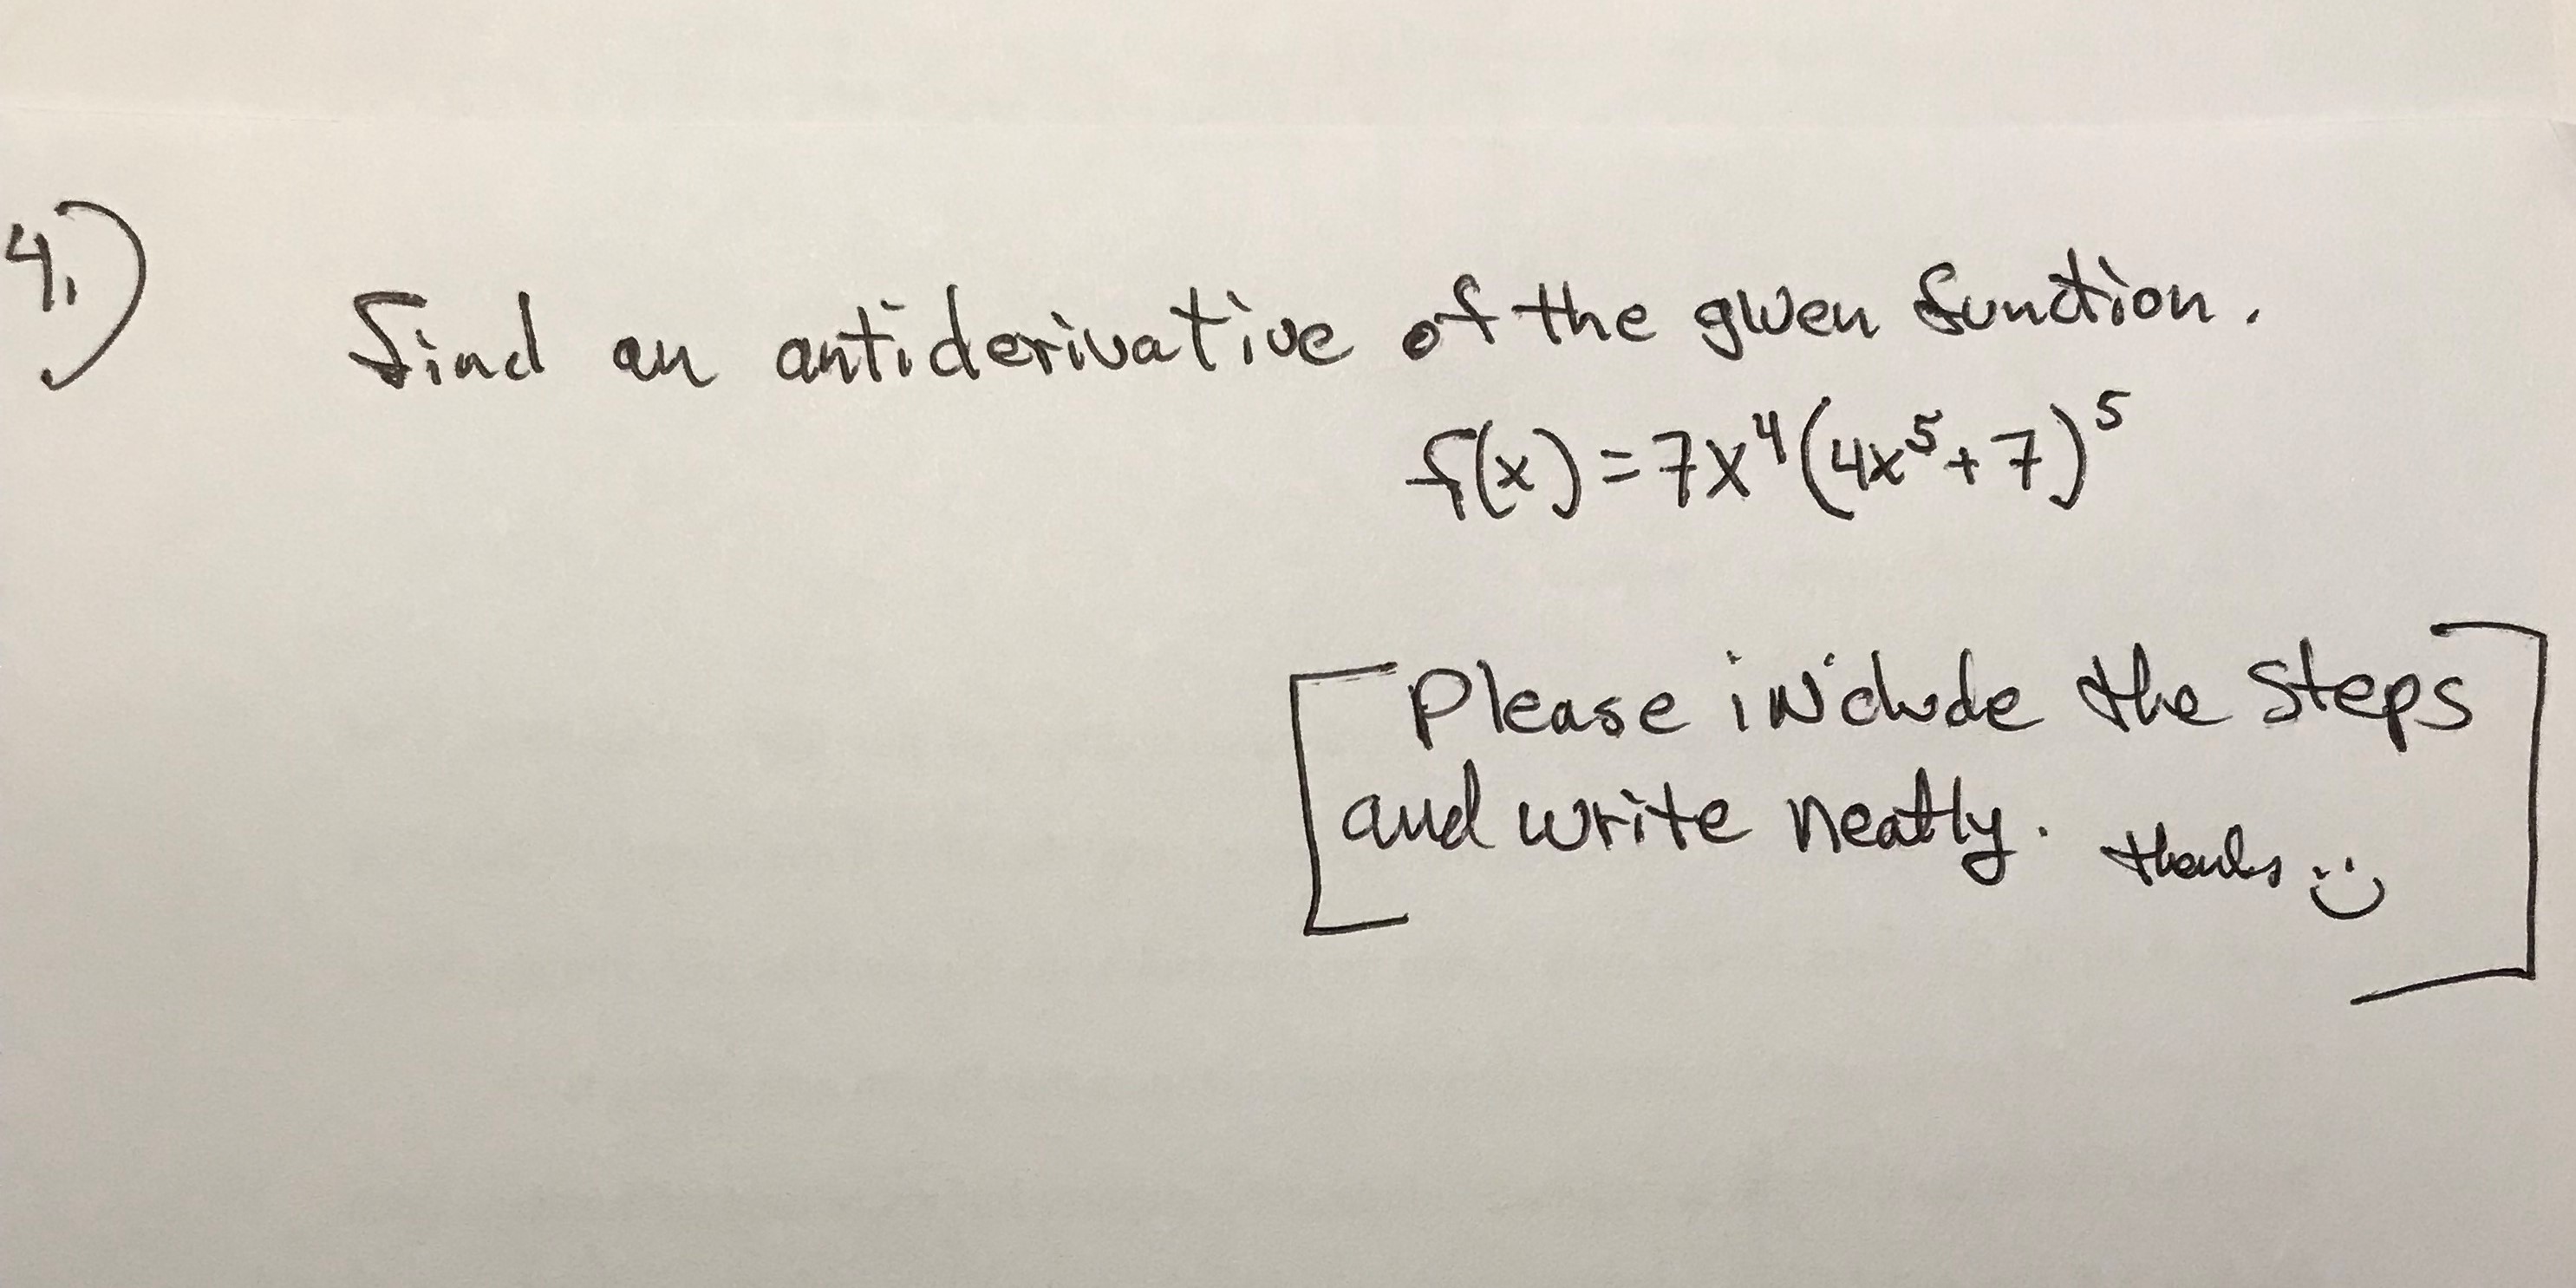 4.)
find an antiderivative of the given function.
f(x) = 7x⁴(4x⁵+7)⁵
Please include the steps
and write neatly. thanks :)